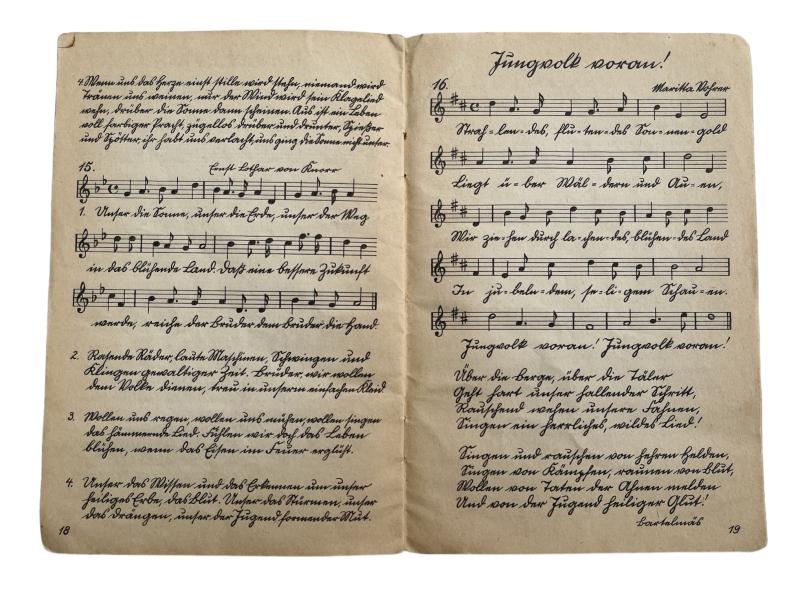 4. Wenn uns das Herze einst stille wird stehn, niemand wird
Tränen uns weinen, nur der Wind wird sein Klagelied
wehn, drüber die Sonne dann scheinen. Aus ist ein Leben
voll farbiger Pracht, zügellos drüber und drunter, Spießer
und Spötter, ihr habt uns verlacht, uns ging die Sonne nicht unter.
15.
Ernst Lothar von Knorr
1. Unser die Sonne, unser die Erde, unser der Weg
in das blühende Land. Daß eine bessere Zukunft
werde, reiche der Bruder dem Bruder die Hand.
2. Rasende Räder, laute Maschinen, Schwingen und
Klingen gewaltiger Zeit. Brüder, wir wollen
dem Volke dienen, treu in unserm einfachen Kleid.
3. Wollen uns regen, wollen uns mühen, wollen singen
das hämmernde Lied. Fühlen wir doch das Leben
blühen, wenn das Eisen im Feuer erglüht.
4. Unser das Wissen und das Erkennen um unser
heiliges Erbe, das Blut. Unser das Stürmen, unser
das Drängen, unser der Jugend formender Mut.
18
Jungvolk voran!
16.
Maritta Rohrer
Strah-len-des, flu-ten-des Son-nen-gold
Liegt ü-ber Wäl-dern und Au-en,
Wir zie-hen durch la-chen-des, blühen-des Land
In ju-beln-dem, se-li-gem Schau-en.
Jungvolk voran! Jungvolk voran!
Über die Berge, über die Täler
Geht hart unser hallender Schritt,
Rauschend wehen unsere Fahnen,
Singen ein herrliches, wildes Lied!
Singen und rauschen von hehren Helden,
Singen von Kämpfen, raunen von Blut,
Wollen von Taten der Ahnen melden
Und von der Jugend heiliger Glut!
Bartelmäs
19